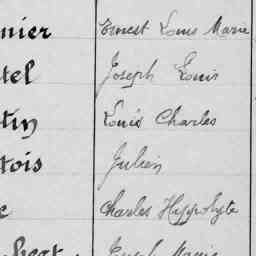 nier Ernest Louis Marie
tel Joseph Louis
tin Louis Charles
tois Julien
e Charles Hippolyte